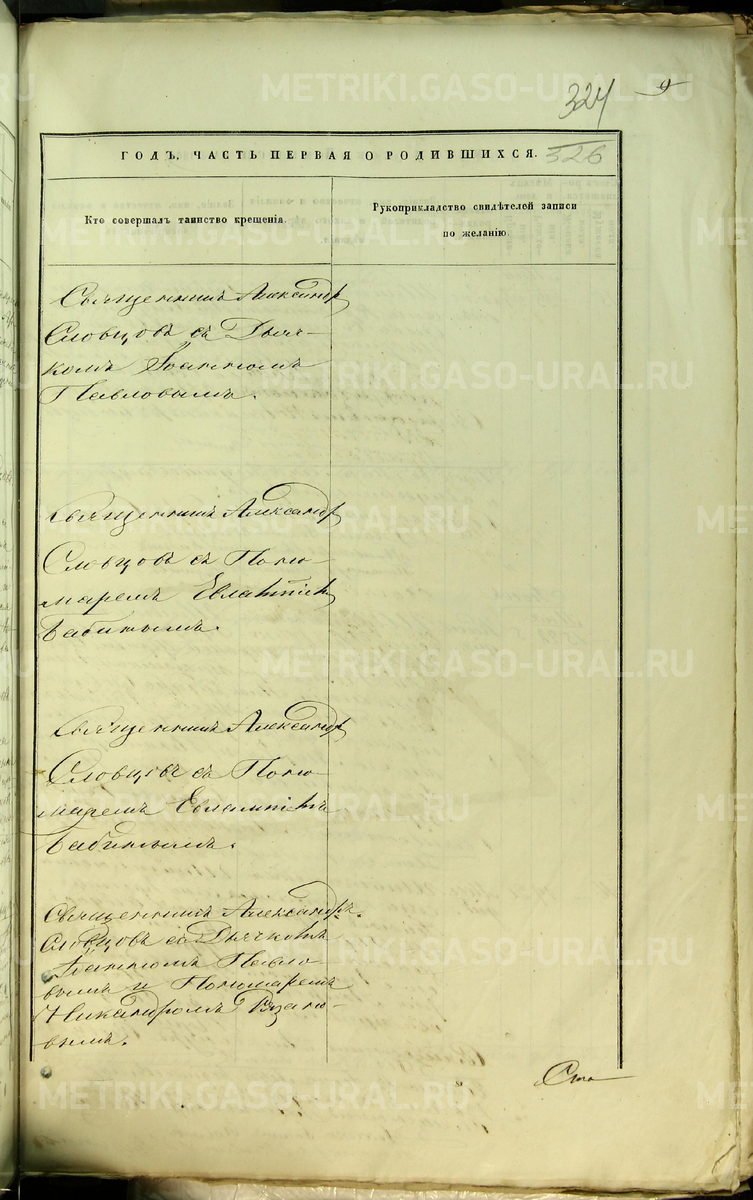 324
9
ГОДЪ, ЧАСТЬ ПЕРВАЯ О РОДИВШИХСЯ.
326
Кто совершалъ таинство крещенія.
Рукоприкладство свидѣтелей записи
по желанію.
Священникъ Александр
Словцовъ съ Дьяч-
комъ Іоанномъ
Павловымъ.
Священникъ Александр
Словцовъ съ Поно-
маремъ Евлампіемъ
Бабинымъ.
Священникъ Александр
Словцовъ съ Поно-
маремъ Евлампіемъ
Бабинымъ.
Священникъ Александръ
Словцовъ съ Дьячкомъ
Іоанномъ Павло-
вымъ и Пономаремъ
Никандромъ
вымъ.
METRIKI.GASO-URAL.RU